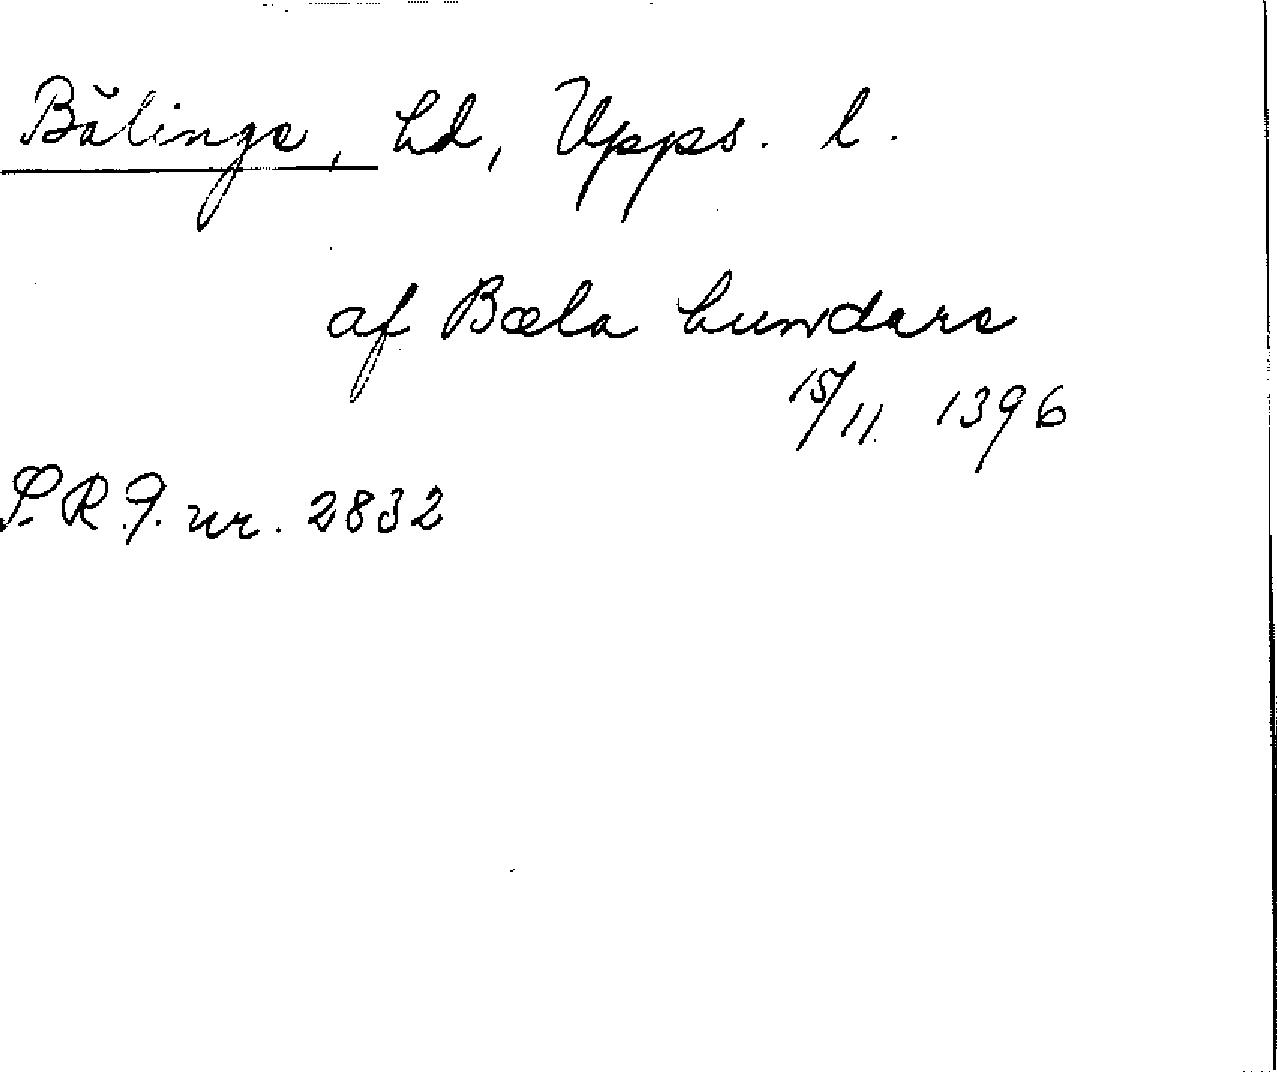 Bälinge, hd, Upps. l.
af Bœla hundare
15/11 1396
S.R.P. nr. 2832